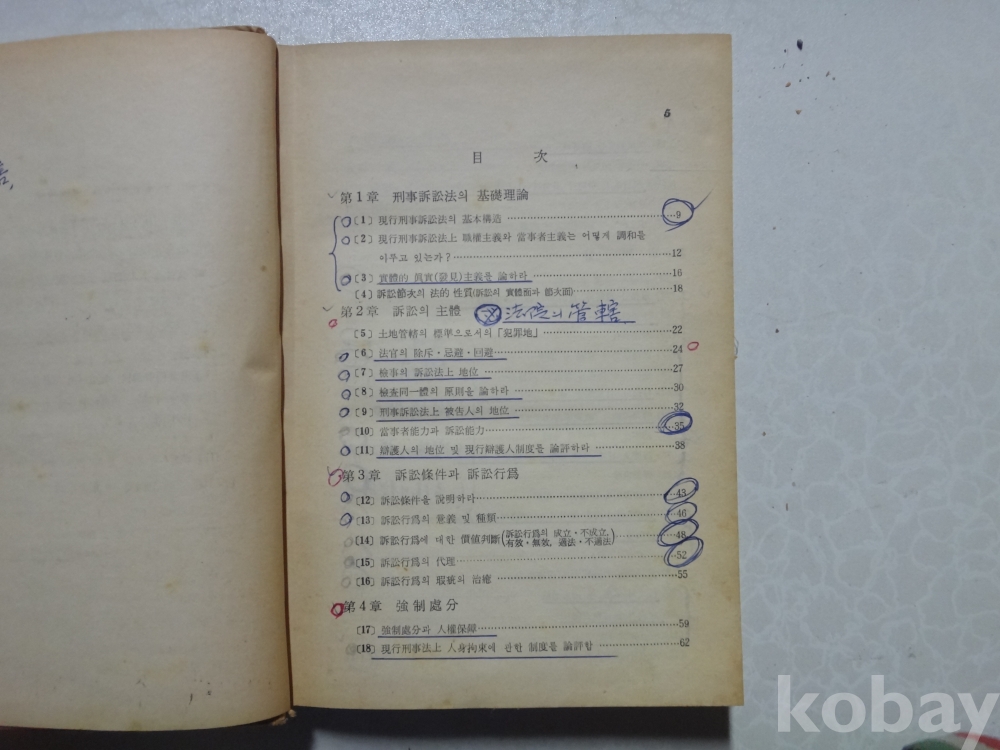 5
目 次
第1章 刑事訴訟法의 基礎理論
〔1〕 現行刑事訴訟法의 基本構造 ……9
〔2〕 現行刑事訴訟法上 職權主義와 當事者主義는 어떻게 調和를
이루고 있는가? ……12
〔3〕 實體的 眞實(發見)主義를 論하라 ……16
〔4〕 訴訟節次의 法的 性質(訴訟의 實體面과 節次面) ……18
第2章 訴訟의 主體 法院의 管轄
〔5〕 土地管轄의 標準으로서의 「犯罪地」 ……22
〔6〕 法官의 除斥・忌避・回避 ……24
〔7〕 檢事의 訴訟法上 地位 ……27
〔8〕 檢査同一體의 原則을 論하라 ……30
〔9〕 刑事訴訟法上 被告人의 地位 ……32
〔10〕 當事者能力과 訴訟能力 ……35
〔11〕 辯護人의 地位 및 現行辯護人制度를 論評하라 ……38
第3章 訴訟條件과 訴訟行爲
〔12〕 訴訟條件을 說明하라 ……43
〔13〕 訴訟行爲의 意義 및 種類 ……46
〔14〕 訴訟行爲에 대한 價値判斷(訴訟行爲의 成立・不成立, 有效・無效, 適法・不適法) ……48
〔15〕 訴訟行爲의 代理 ……52
〔16〕 訴訟行爲의 瑕疵의 治癒 ……55
第4章 強制處分
〔17〕 強制處分과 人權保障 ……59
〔18〕 現行刑事法上 人身拘束에 관한 制度를 論評함 ……62
kobay